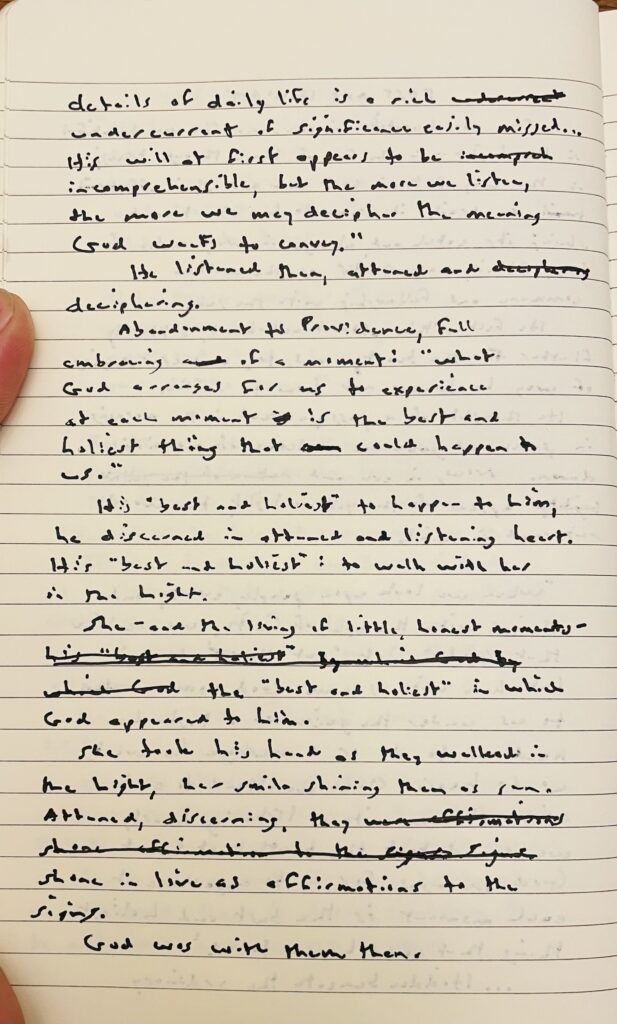 details of daily life is a rich undercurrent
undercurrent of significance easily missed...
His will at first appears to be incompreh
incomprehensible, but the more we listen,
the more we may decipher the meaning
God wants to convey."
He listened then, attuned and deciphering
deciphering.
Abandonment to Providence, full
embracing and of a moment: "what
God arranges for us to experience
at each moment is is the best and
holiest thing that can could happen to
us."
His "best and holiest" to happen to him,
he discerned in attuned and listening heart.
His "best and holiest": to walk with her
in the light.
She - and the living of little, honest moments -
his "best and holiest" by which God by
which God the "best and holiest" in which
God appeared to him.
She took his hand as they walked in
the light, her smile shining them as sun.
Attuned, discerning, they were affirmations
shone affirmation to the signs signs.
shone in live as affirmations to the
signs.
God was with them then.